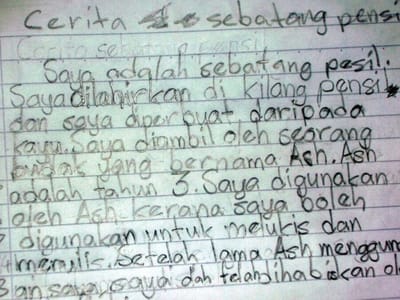 Cerita sebatang pensi
Saya adalah sebatang pesil.
Saya dilahirkan di kilang pensil
dan saya diperbuat daripada
kayu. Saya diambil oleh seorang
budak yang bernama Ash. Ash
adalah tahun 3. Saya digunakan
oleh Ash kerana saya boleh
digunakan untuk melukis dan
menulis. Setelah lama Ash menggun
an saya, saya dah telah ihabiskan ol